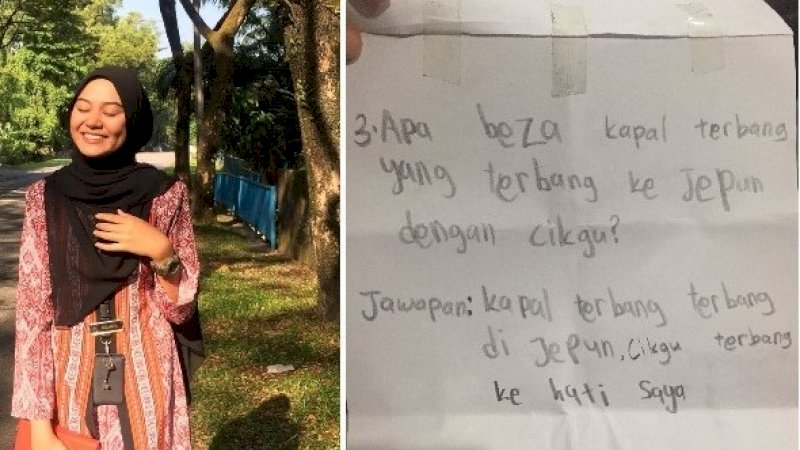 3. Apa beza kapal terbang
yang terbang ke Jepun
dengan cikgu?
Jawapan: kapal terbang terbang
di Jepun, cikgu terbang
ke hati saya